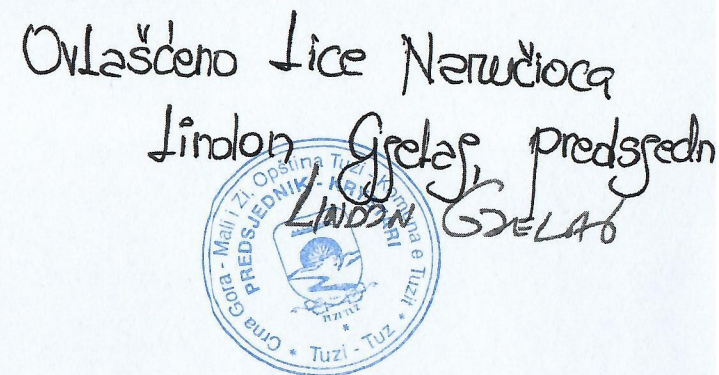 Ovlašćeno lice Naručioca
Lindon Gjelaj, predsjedn
LINDON GJELAJ
Crna Gora - Mali i Zi. Opština Tuzi - Komuna e Tuzit
PREDSJEDNIK - KRYETARI
* Tuzi - Tuz *